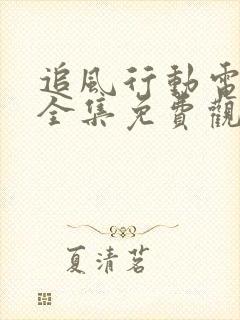 追風行動電
全集免費觀
夏清茗